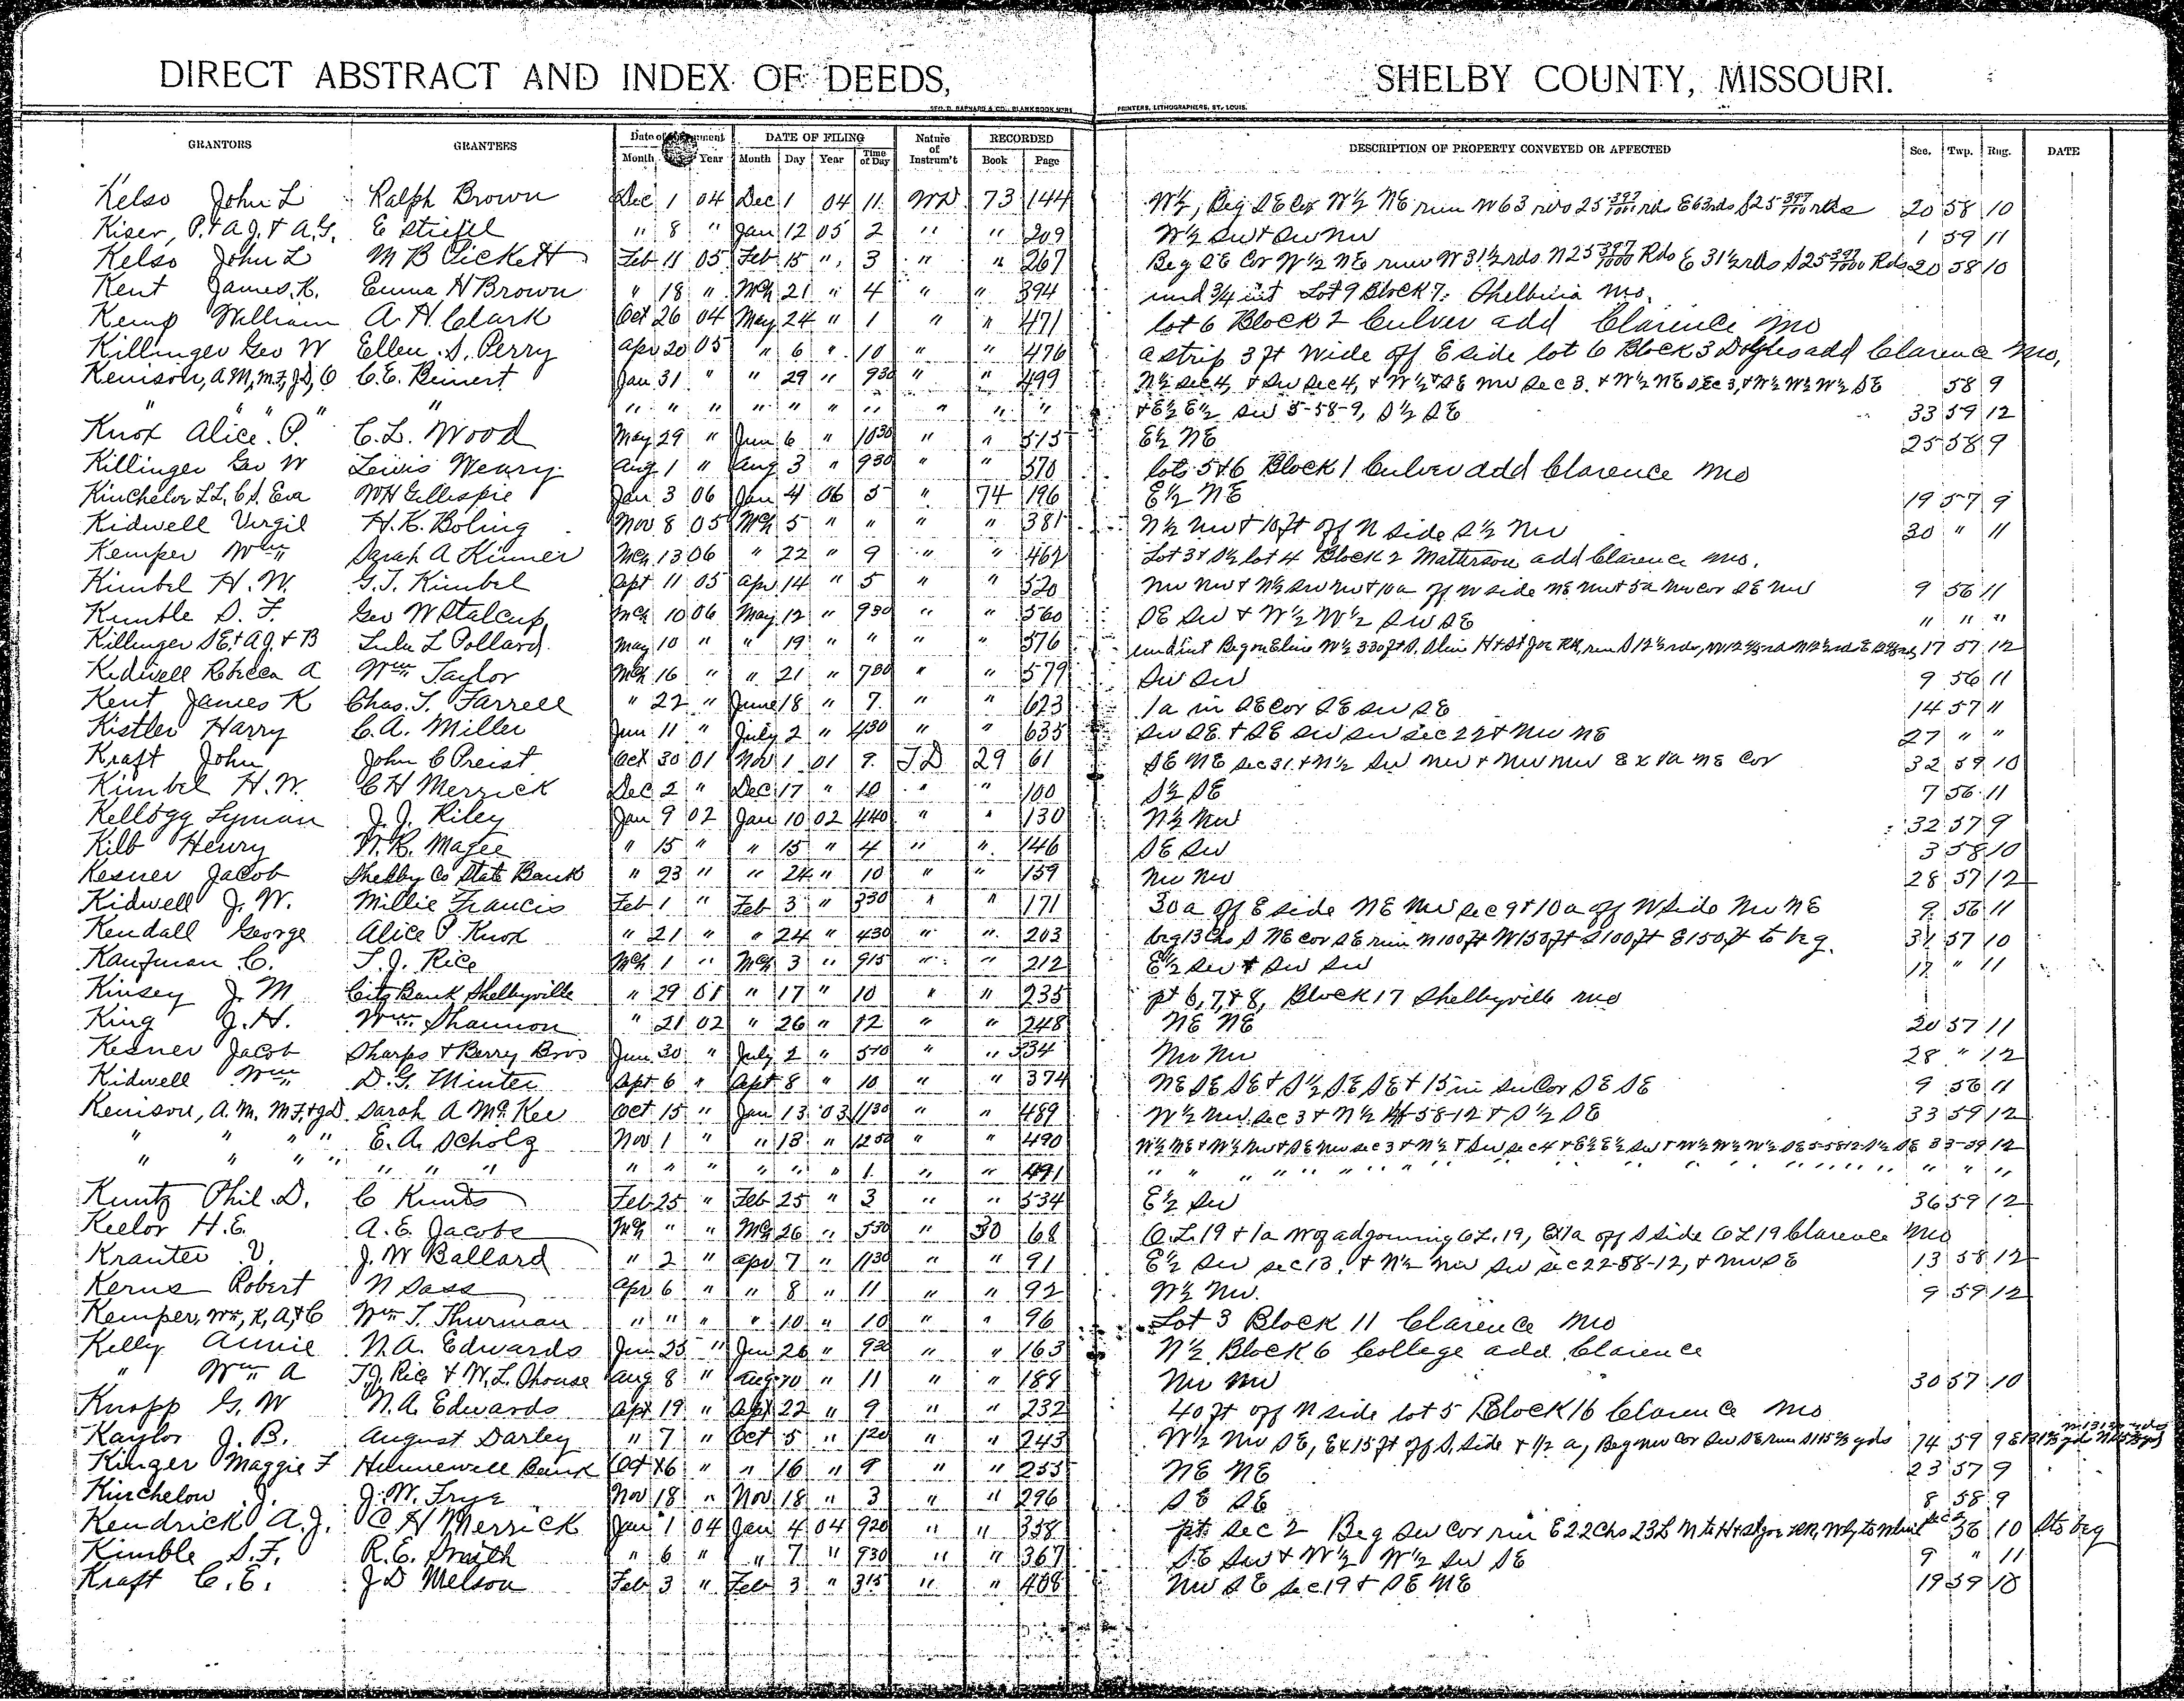 DIRECT ABSTRACT AND INDEX OF DEEDS, SHELBY COUNTY, MISSOURI.
GEO. D. BARNARD & CO., BLANK BOOK M'F'RS PRINTERS, LITHOGRAPHERS, ST. LOUIS.
GRANTORS GRANTEES Date of DATE OF FILING Nature of Instrum't RECORDED DESCRIPTION OF PROPERTY CONVEYED OR AFFECTED Sec. Twp. Rng. DATE
Month Year Month Day Year Time of Day Book Page
Kelso John L Ralph Brown Dec 1 04 Dec 1 04 11 WD 73 144 W½, Beg SE Cor W½ NE run W 63 rds 25 397/1000 rds E 63 rds S 25 397/1000 rds 20 58 10
Kiser, P. & A J. & A. G. E Striefel " 8 " Jan 12 05 2 " " 209 W½ SW & SW NW 1 59 11
Kelso John L M B Pickett Feb 11 05 Feb 15 " 3 " " 267 Beg SE Cor W½ NE run W 31½ rds N 25 397/1000 Rds E 31½ rds S 25 397/1000 Rds 20 58 10
Kent James K. Emma H Brown " 18 " Mch 21 " 4 " " 394 und ¾ int Lot 9 Block 7. Shelbina Mo.
Kemp William A. H. Clark Oct 26 04 May 24 " 1 " " 471 lot 6 Block 2 Culver add Clarence Mo
Killinger Geo W Ellen S. Perry Apr 20 05 " 6 " 10 " " 476 a strip 3 ft wide off E side lot 6 Block 3 add Clarence Mo,
Kenison, A M, M F, J D, O C. E. Reinert Jan 31 " " 29 " 930 " " 499 N½ sec 4, & SW sec 4, & W½ & SE NW sec 3. & W½ NE sec 3, & W½ W½ W½ SE 58 9
" " " " " " " " " " " " " " " & E½ E½ SW 5-58-9, S½ SE 33 59 12
Knox Alice P. C. L. Wood May 29 " Jun 6 " 1030 " " 515 E½ NE 25 58 9
Killinger Geo W Lewis Weary Aug 1 " Aug 3 " 930 " " 570 lots 5 & 6 Block 1 Culver add Clarence Mo
Kincheloe L L, C S, Eva W H Gillespie Jan 3 06 Jan 4 06 5 " 74 196 E½ NE 19 57 9
Kidwell Virgil H. K. Boling Nov 8 05 Mch 5 " " " " 381 N½ NW & 10 ft off N side S½ NW 30 " 11
Kemper Wm Sarah A Kinner Mch 13 06 " 22 " 9 " " 462 Lot 3 & S½ lot 4 Block 2 Matterson add Clarence Mo.
Kimbel H. W. G. T. Kimbel Sept 11 05 Apr 14 " 5 " " 520 NW NW & N½ SW NW & 10a off W side NE NW & 5a NW cor SE NW 9 56 11
Kimble S. F. Geo W Stalcup Mch 10 06 May 12 " 930 " " 560 SE SW & W½ W½ SW SE " " "
Killinger S E. & A J. & B Lulu L Pollard May 10 " " 19 " " " " 576 und int Beg on E line W½ 330 ft S. S line H & St Joe RR, run S 12½ rds, 17 57 12
Kidwell Rebecca A Wm Taylor Mch 16 " " 21 " 730 " " 579 SW SW 9 56 11
Kent James K Chas. T. Farrell " 22 " June 18 " 7 " " 623 1a in SE cor SE SW SE 14 57 11
Kistler Harry C. A. Miller Jun 11 " July 2 " 430 " " 635 SW SE & SE SW SW sec 22 & NW NE 27 " "
Kraft John John C Preist Oct 30 01 Nov 1 01 9 T D 29 61 SE NE sec 31 & N½ SW NW & NW NW Ex 1a NE cor 32 59 10
Kimbel H. W. C H Merrick Dec 2 " Dec 17 " 10 " " 100 S½ SE 7 56 11
Kellogg Lyman J. J. Riley Jan 9 02 Jan 10 02 440 " " 130 N½ NW 32 57 9
Kilb Henry W. R. Magee " 15 " " 15 " 4 " " 146 SE SW 3 58 10
Kesner Jacob Shelby Co State Bank " 23 " " 24 " 10 " " 159 NW NW 28 57 12
Kidwell J. W. Millie Francis Feb 1 " Feb 3 " 330 " " 171 30a off E side NE NW sec 9 & 10a off W side NW NE 9 56 11
Kendall George Alice P. Knox " 21 " " 24 " 430 " " 203 beg 13 Chs S NE cor SE run N 100 ft W 150 ft S 100 ft E 150 ft to beg. 31 57 10
Kaufman C. T. J. Rice Mch 1 " Mch 3 " 915 " " 212 E½ SW & SW SW 17 " 11
Kinsey J. M Citz Bank Shelbyville " 29 01 " 17 " 10 " " 235 pt 6, 7, & 8, Block 17 Shelbyville Mo
King J. H. Wm Shannon " 21 02 " 26 " 12 " " 248 NE NE 20 57 11
Kesner Jacob Sharps & Berry Bros Jun 30 " July 2 " 510 " " 334 NW NW 28 " 12
Kidwell Wm D. G. Minter Sept 6 " Sept 8 " 10 " " 374 NE SE SE & S½ SE SE & 15 in SW Cor SE SE 9 56 11
Kenison, A. M. M F. & J D. Sarah A McKee Oct 15 " Jan 13 03 1130 " " 489 W½ NW sec 3 & N½ 4-58-12 & S½ SE 33 59 12
" " " " E. A. Scholz Nov 1 " " 13 " 1250 " " 490 W½ NE & W½ NW & SE NW sec 3 & N½ & SW sec 4 & E½ E½ SW & W½ W½ W½ SE 5-58-12-S½ SE 33-59 12
" " " " " " " " " " " " " 1 " " 491 " " " " " " " " " " " "
Kuntz Phil D. C Kunts Feb 25 " Feb 25 " 3 " " 534 E½ SW 36 59 12
Keelor H. E. A. E. Jacobs Mch " " Mch 26 " 530 " 30 68 O. L. 19 & 1a W of adjoining O L. 19, Ex 1a off S side O L 19 Clarence Mo
Kranter V. J. W Ballard " 2 " Apr 7 " 1130 " " 91 E½ SW sec 13, & N½ NW SW sec 22-58-12, & NW SE 13 58 12
Kerns Robert N Sass Apr 6 " " 8 " 11 " " 92 W½ NW. 9 59 12
Kemper, Wm, K, A, & C Wm T. Thurman " " " " 10 " 10 " " 96 Lot 3 Block 11 Clarence Mo
Kelly Annie N. A. Edwards Jun 25 " Jun 26 " 920 " " 163 N½ Block 6 College add Clarence
" Wm A T. J. Rice & W. L. Shouse Aug 8 " Aug 10 " 11 " " 188 NW NW 30 57 10
Knopp G. W N. A. Edwards Sept 19 " Sept 22 " 9 " " 232 40 ft off N side lot 5 Block 16 Clarence Mo
Kaylor J. B. August Darley " 7 " Oct 5 " 120 " " 243 W½ NW SE, Ex 15 ft off S. side & ½ a, Beg NW Cor SW SE run S 115⅔ yds 14 59 9
Kinzer Maggie F Hunnewell Bank Oct 16 " " 16 " 9 " " 255 NE NE 23 57 9
Kinchelow J. J. W. Frye Nov 18 " Nov 18 " 3 " " 296 SE SE 8 58 9
Kendrick A. J. C H Merrick Jan 1 04 Jan 4 04 920 " " 358 pt sec 2 Beg SW cor run E 22 Chs 23 L N to H & St Joe RR, 56 10 S to beg
Kimble S. F. R. E. Smith " 6 " " 7 " 930 " " 367 SE SW & W½ W½ SW SE 9 " 11
Kraft C. E. J D Melson Feb 3 " Feb 3 " 315 " " 408 NW SE sec 19 & SE NE 19 59 10